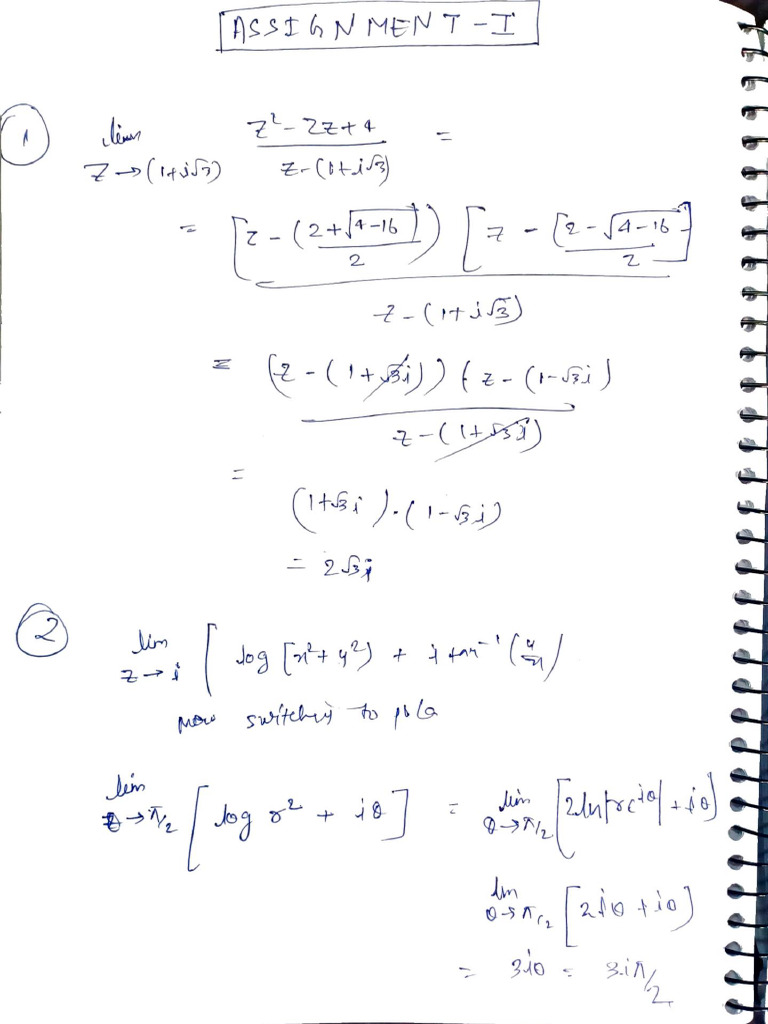 ASSIGNMENT-I
1
lim z→(1+i√3) (z²-2z+4)/(z-(1+i√3)) =
= [z-(2+√4-16)/2)] [z-[2-√4-16]/2] / z-(1+i√3)
= (z-(1+√3i)) (z-(1-√3i) / z-(1+√3i)
=
(1+√3i).(1-√3i)
= 2√3i
2
lim z→i [log [x²+y²) + i tan⁻¹(y/x)
now switching to
lim θ→π/2 [log r² + iθ] = lim θ→π/2 [2ln|re^iθ| + iθ]
lim θ→π/2 [2iθ + iθ]
= 3iθ = 3iπ/2